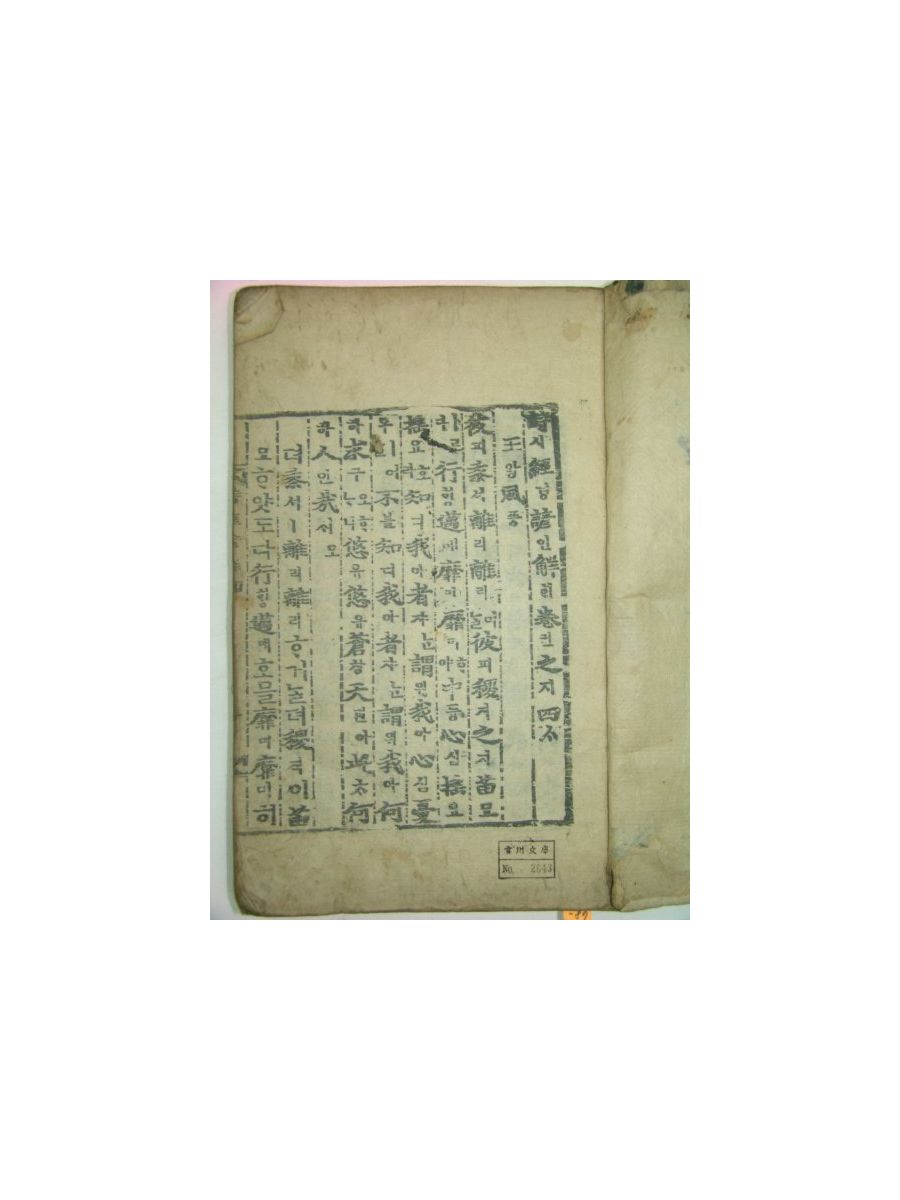 詩시經경諺언解ᄒᆡ卷권之지四ᄉᆞ
王왕風풍
彼피黍셔離리離리어ᄂᆞᆯ彼피稷직之지苗묘
行ᄒᆡᆼ邁매靡미靡미ᄒᆞ야中듕心심搖요
搖요호라知디我아者쟈ᄂᆞᆫ謂위我아心심憂
우ㅣ어不블知디我아者쟈ᄂᆞᆫ謂위我아何
하求구오ᄒᆞᄂᆞ니悠유悠유蒼창天텬아此ᄎᆞ何
하人인哉ᄌᆡ오
뎌黍셔ㅣ離리離리ᄒᆞ거ᄂᆞᆯ뎌稷직이苗
묘ᄒᆞ얏도다行ᄒᆡᆼ邁매호ᄆᆞᆯ靡미靡미히
川文庫
No. 2643